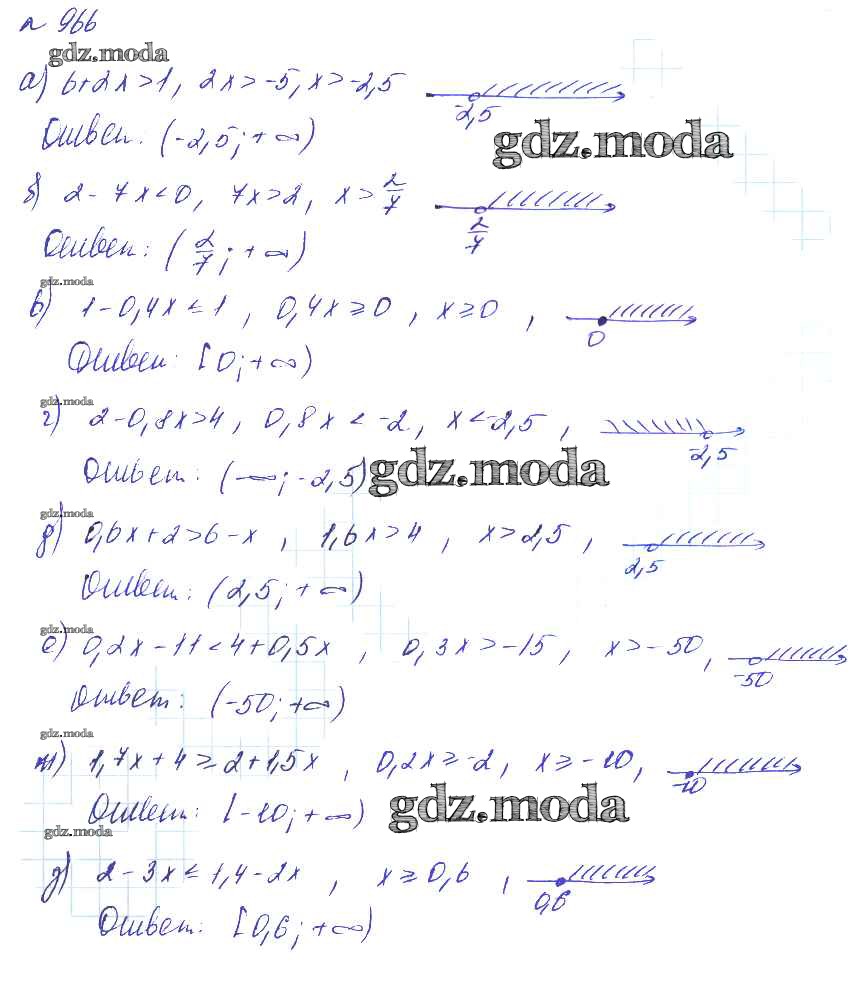 № 966
gdz.moda
а) 6+2x>1, 2x>-5, x>-2,5 -2,5
Ответ: (-2,5; +∞)
gdz.moda
б) 2-7x<0, 7x>2, x>2/7 2/7
Ответ: (2/7; +∞)
gdz.moda
в) 1-0,4x≤1, 0,4x≥0, x≥0, 0
Ответ: [0; +∞)
gdz.moda
г) 2-0,8x>4, 0,8x<-2, x<-2,5, -2,5
Ответ: (-∞; -2,5)
gdz.moda
gdz.moda
д) 0,6x+2>6-x, 1,6x>4, x>2,5, 2,5
Ответ: (2,5; +∞)
gdz.moda
е) 0,2x-11<4+0,5x, 0,3x>-15, x>-50, -50
Ответ: (-50; +∞)
gdz.moda
ж) 1,7x+4≥2+1,5x, 0,2x≥-2, x≥-10, -10
Ответ: [-10; +∞)
gdz.moda
gdz.moda
з) 2-3x≤1,4-2x, x≥0,6, 0,6
Ответ: [0,6; +∞)